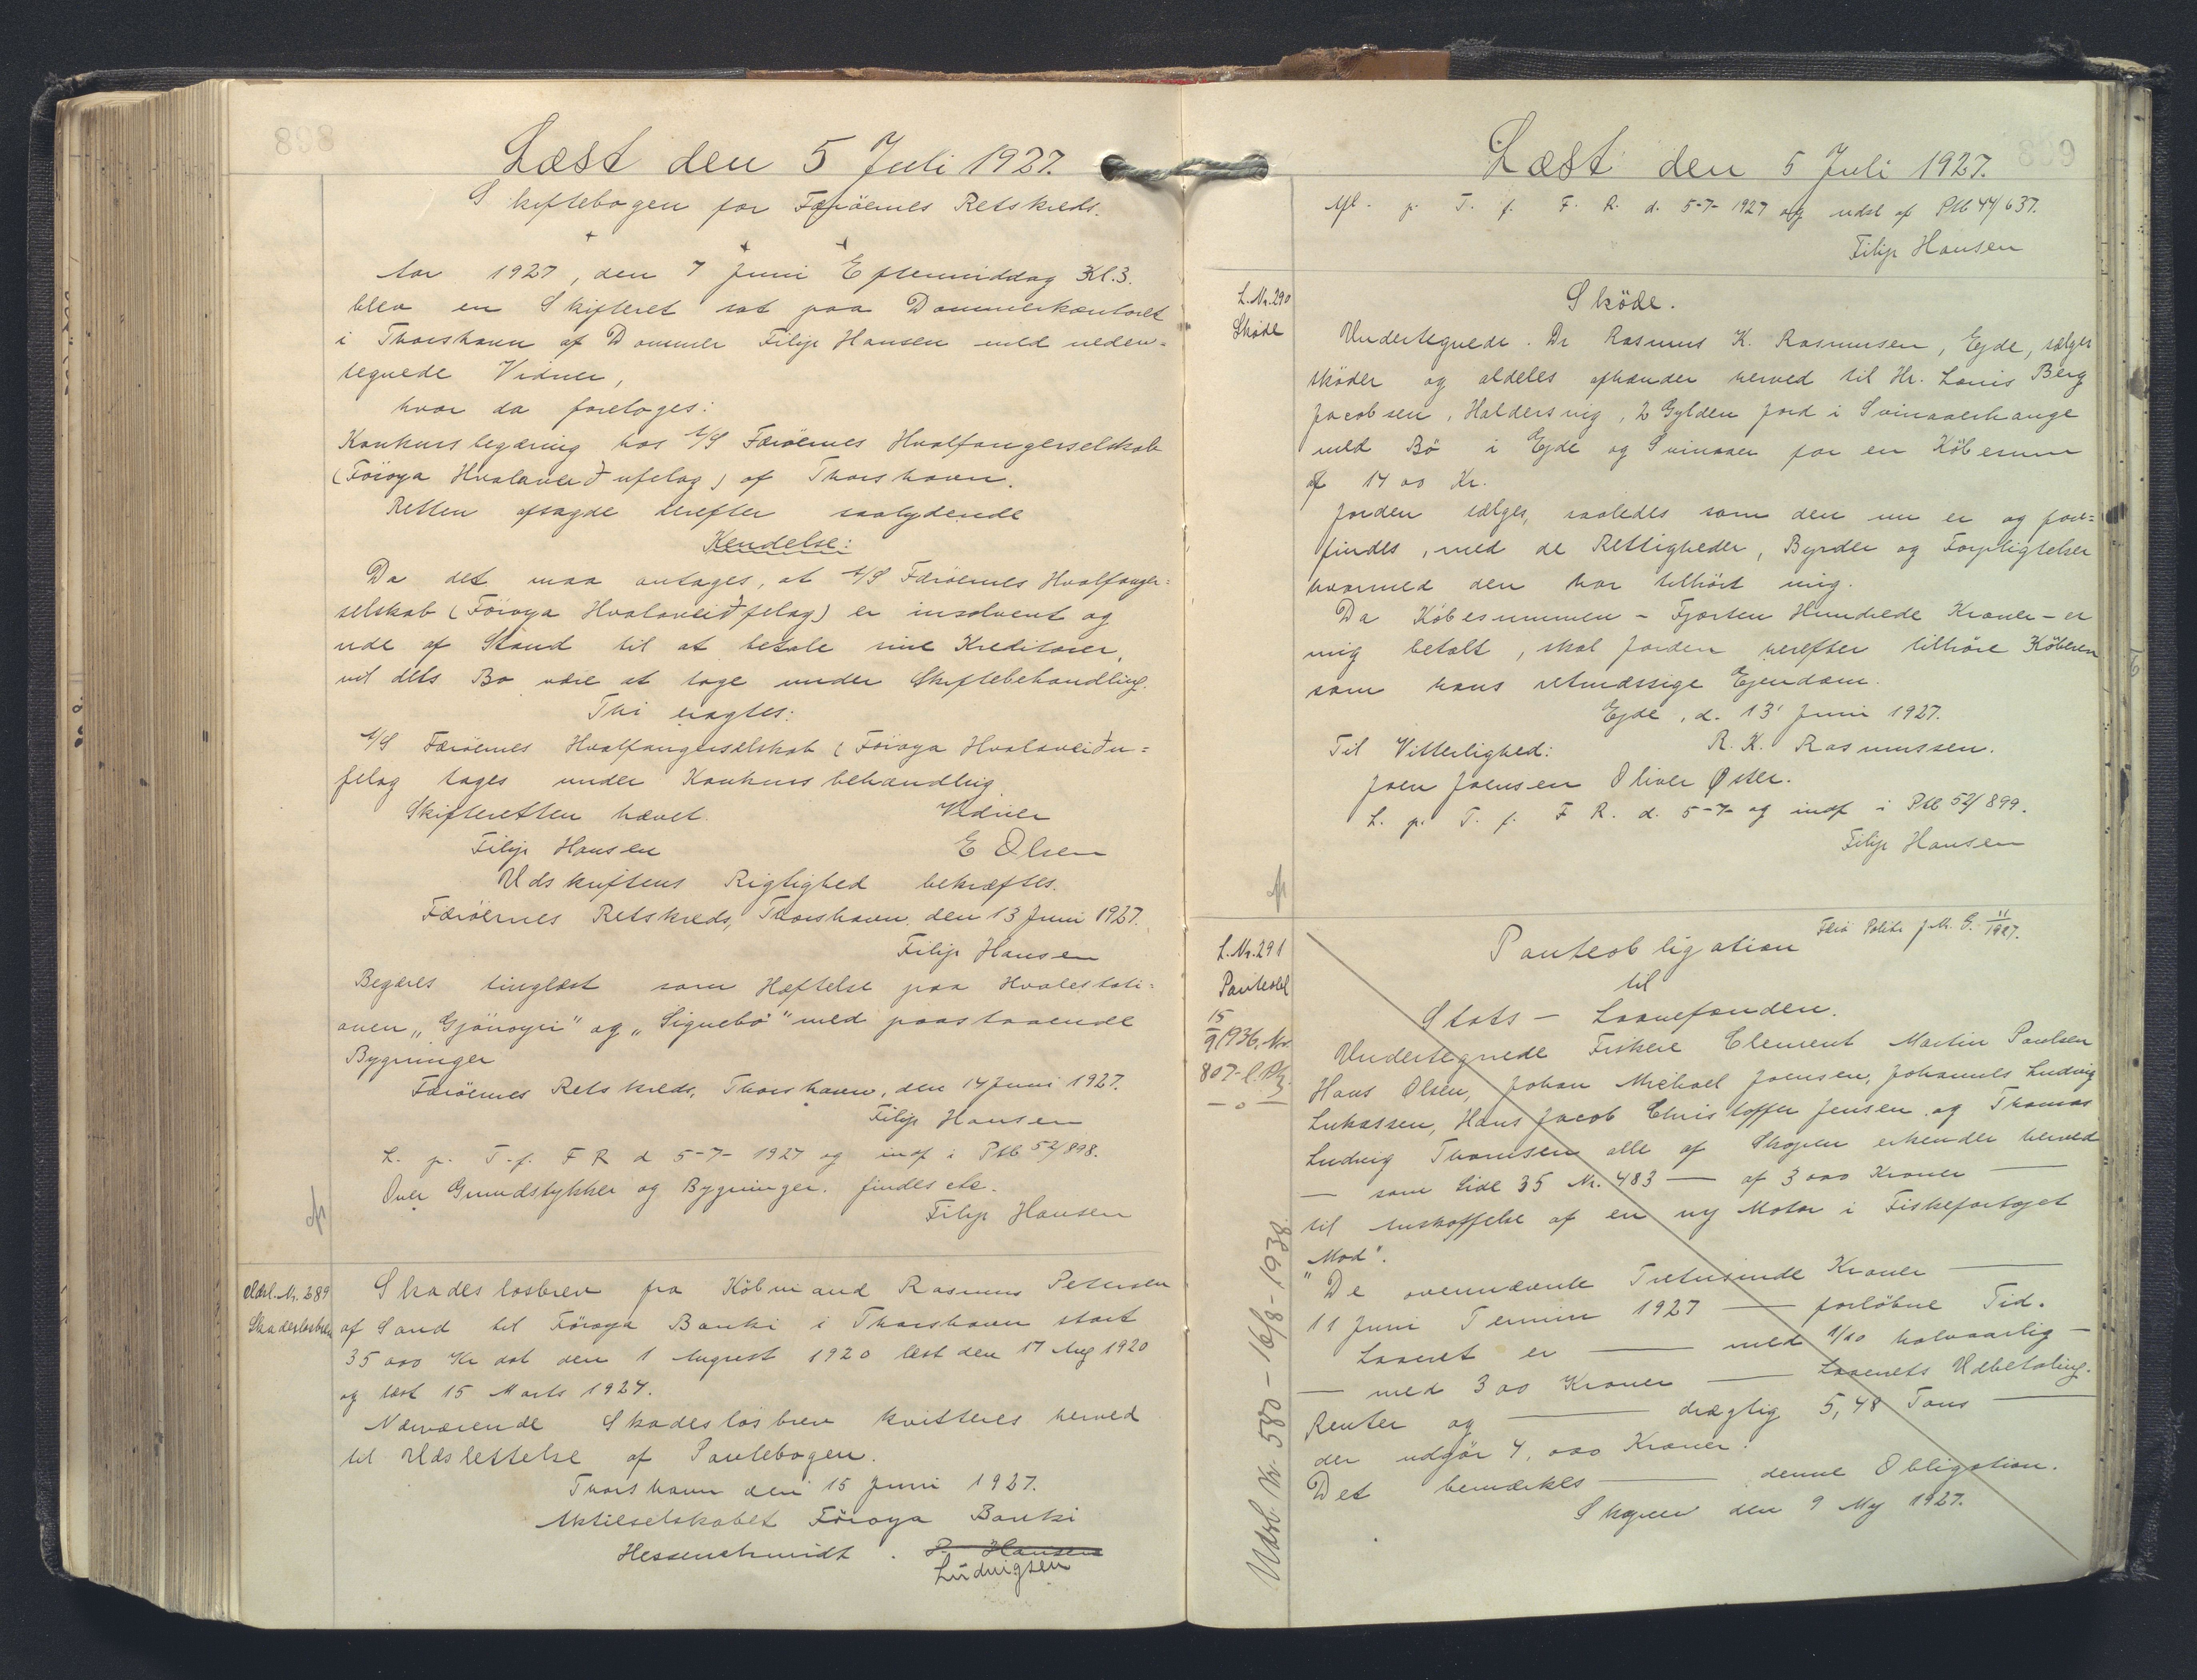 Læst den 5 Juli 1927.
Skiftebogen for Færöernes Retskreds.
Aar 1927, den 7 Juni Eftermiddag Kl. 3.
blev en Skifteret sat paa Dommerkontoret
i Thorshavn af Dommer Filip Hansen med neden-
tegnede Vidner,
hvor da foretoges:
Konkursbegæring hos A/S Færöernes Hvalfangerselskab
(Föroya Hvalaveiðufelag) af Thorshavn.
Retten afsagde derefter saalydende
Kendelse:
Da det maa antages, at A/S Færöernes Hvalfanger=
selskab (Föroya Hvalaveiðfelag) er insolvent og
ude af Stand til at betale sine Kreditorer,
vil dets Bo være at tage under Skiftebehandling.
Thi eragtes:
A/S Færöernes Hvalfangerselskab (Föroya Hvalaveiðu=
felag tages under Konkursbehandling
Skifteretten hævet. Vidner
Filip Hansen E Olsen
Udskriftens Rigtighed bekræftes.
Færöernes Retskreds, Thorshavn den 13 Juni 1927.
Filip Hansen
Begæres tinglæst som Hæftelse paa Hvalestati=
onen "Gjánoyri" og "Signebö" med paastaaende
Bygninger
Færöernes Retskreds, Thorshavn, den 14 Juni 1927.
Filip Hansen
L. p. T. f. F R d 5-7-1927 og indf i Ptb 52/898.
Over Grundstykker og Bygninger. findes etc.
Filip Hansen
Udsl. Nr. 289
Skadeslosbrev
Skadeslosbrev fra Köbmand Rasmus Petersen
af Sand til Föroya Banki i Thorshavn stort
35000 Kr dat den 1 August 1920 læst den 17 Aug 1920
og læst 15 Marts 1927.
Nærværende Skadeslosbrev kvitteres herved
til Udslettelse af Pantebogen.
Thorshavn den 15 Juni 1927.
Aktieselskabet Föroya Banki
Hessenschmidt . P. Hansen
Ludvigsen
Læst den 5 Juli 1927.
Afl. p. T. f. F. R. d. 5-7-1927 og udsl af Ptb 44/637.
Filip Hansen
L. Nr. 290
Sköde
Sköde.
Undertegnede. Dr Rasmus K. Rasmussen, Ejde, sælger
sköder og aldeles afhænder herved til Hr. Louis Berg
Jacobsen, Haldersvig, 2 Gylden Jord i Svinaaerhauge
med Bö i Ejde og Svinaaer for en Köbesum
af 1400 Kr.
Jorden sælges, saaledes som den nu er og fore=
findes, med de Rettigheder, Byrder og Forpligtelser
hvormed den har tilhört mig.
Da Köbesummen - Fjorten Hundrede Kroner - er
mig betalt, skal Jorden herefter tilhöre Köberen
som hans retmæssige Ejendom.
Ejde, d. 13' Juni 1927.
Til Vitterlighed: R. K. Rasmussen.
Joen Joensen Oliver Øster.
L. p. T. f. F R. d. 5-7- og indf i Ptb 52/899.
Filip Hansen
L. Nr. 291
Panteobl
15
9 1936. Nr.
807
Udsl. Nr. 580 - 16/8 - 1938.
Panteobligation
11
1927.
til
Stats - Laanefonden.
Undertegnede Fiskere Clement Martin Poulsen
Hans Olsen, Johan Michael Joensen, Johannes Ludvig
Lukassen, Hans Jacob Christoffer Jensen og Thomas
Ludvig Thomsen alle af Skopun erkender herved
— som Side 35 Nr. 483 — af 3000 Kroner —
til Anskaffelse af en ny Motor i Fiskefartojet
"Mod".
De ovennævnte Tretusinde Kroner —
11 Juni Termin 1927 — forlöbne Tid.
Laanet er — med 1/10 halvaarlig —
— med 300 Kroner — Laanets Udbetaling.
Renter og — drægtig 5,48 Tons —
der udgör 4,000 Kroner.
Det bemærkes — denne Obligation.
Skopun den 9 Maj 1927.